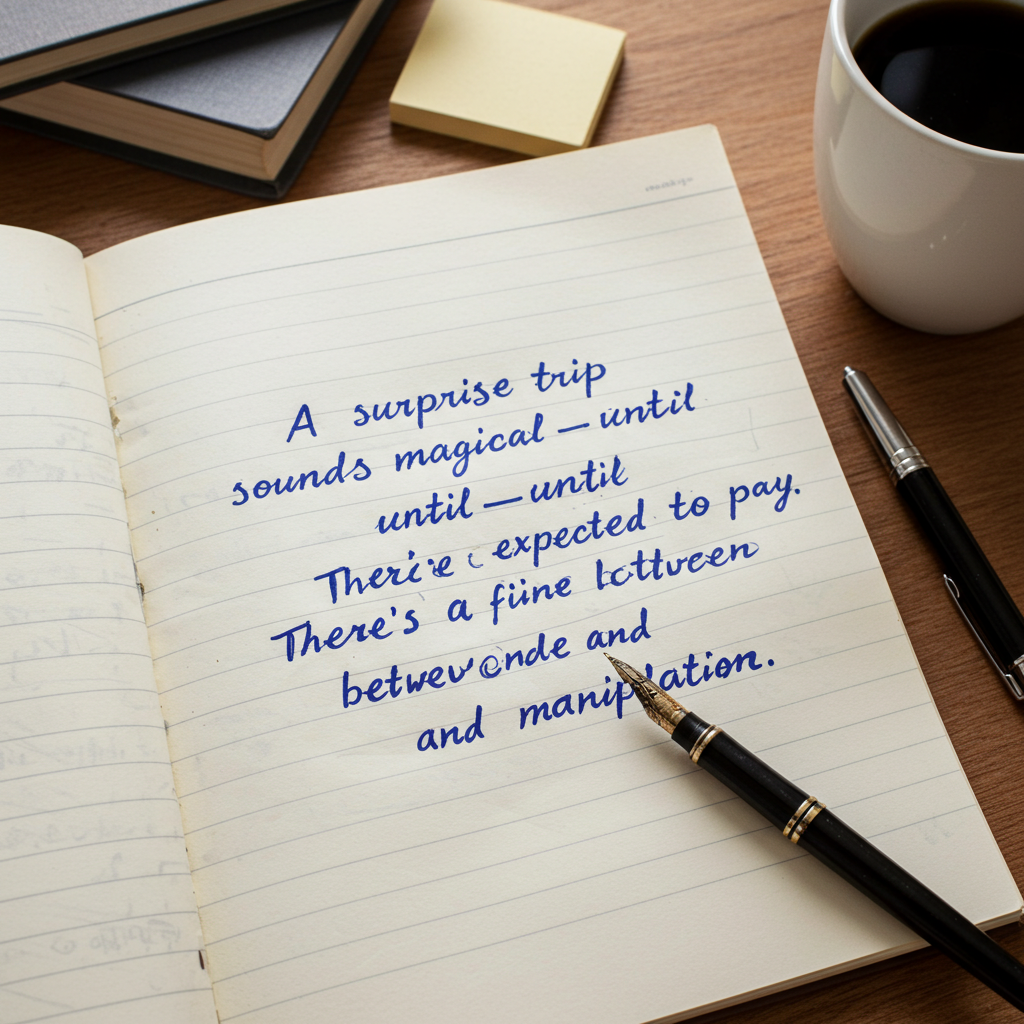 A surprise trip
sounds magical — until
until — until
expected to pay.
There's a fiine
and
and manipulation.